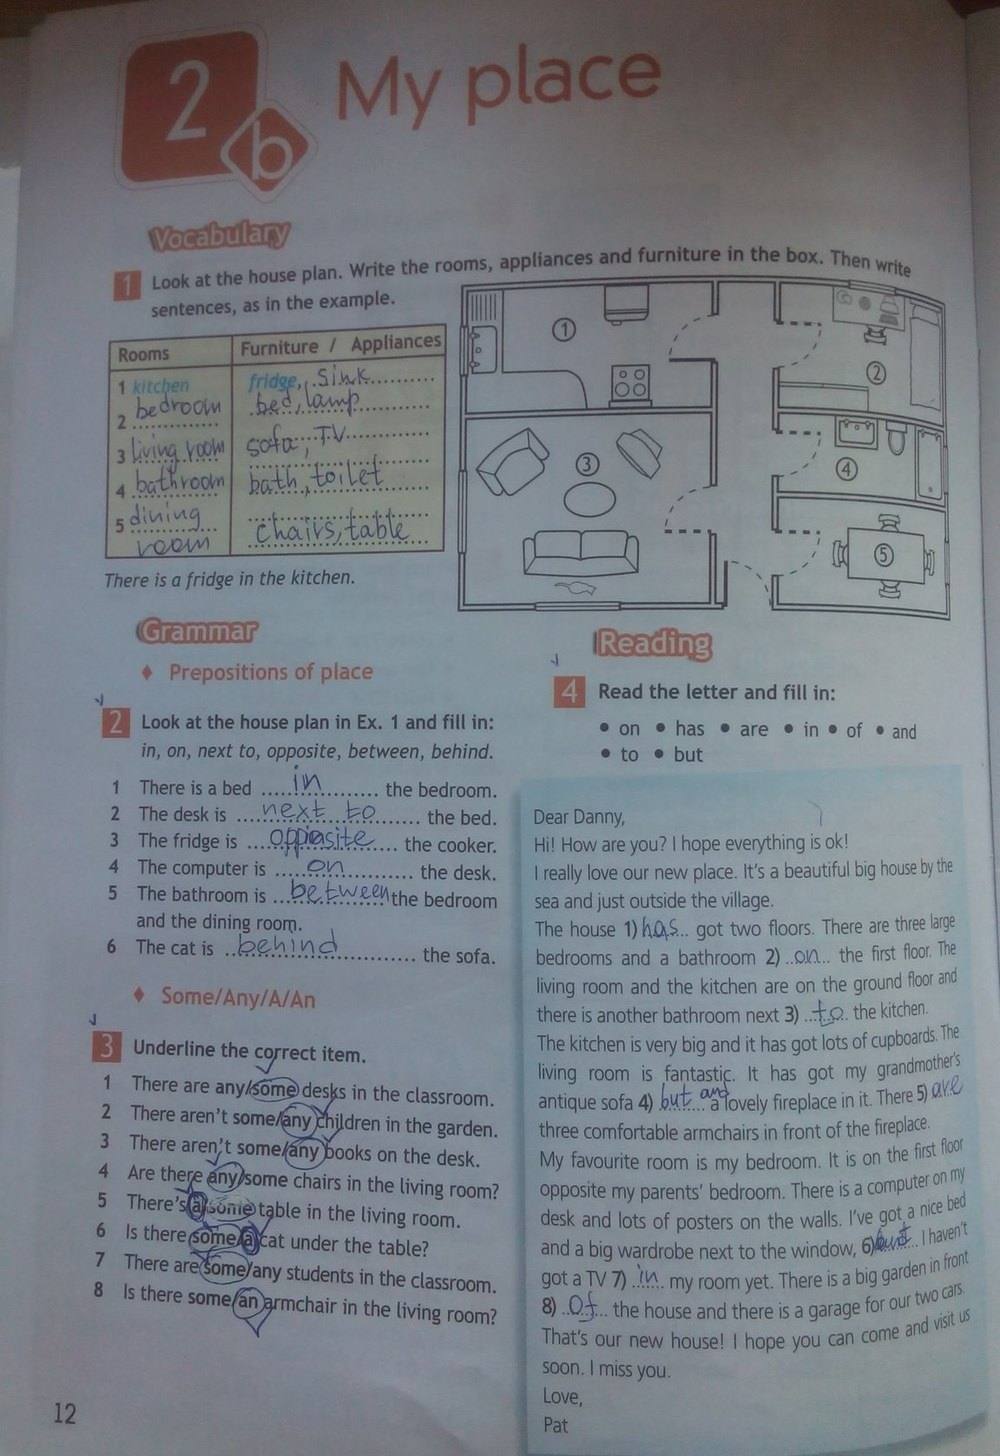 2
b
My place
Vocabulary
1 Look at the house plan. Write the rooms, appliances and furniture in the box. Then write
sentences, as in the example.
Rooms Furniture / Appliances
1 kitchen fridge, sink
2 bedroom bed, lamp
3 living room sofa, TV
4 bathroom bath, toilet
5 dining
room chairs, table
1
2
3
4
5
There is a fridge in the kitchen.
Grammar
♦ Prepositions of place
2 Look at the house plan in Ex. 1 and fill in:
in, on, next to, opposite, between, behind.
1 There is a bed ....in.... the bedroom.
2 The desk is ...next to... the bed.
3 The fridge is ...opposite... the cooker.
4 The computer is ....on.... the desk.
5 The bathroom is ...between the bedroom
and the dining room.
6 The cat is ..behind.... the sofa.
♦ Some/Any/A/An
3 Underline the correct item.
1 There are any/some desks in the classroom.
2 There aren't some/any children in the garden.
3 There aren't some/any books on the desk.
4 Are there any/some chairs in the living room?
5 There's a/some table in the living room.
6 Is there some/a cat under the table?
7 There are some/any students in the classroom.
8 Is there some/an armchair in the living room?
12
Reading
4 Read the letter and fill in:
• on • has • are • in • of • and
• to • but
Dear Danny,
Hi! How are you? I hope everything is ok!
I really love our new place. It's a beautiful big house by the
sea and just outside the village.
The house 1) has... got two floors. There are three large
bedrooms and a bathroom 2) ..on... the first floor. The
living room and the kitchen are on the ground floor and
there is another bathroom next 3) ..to.. the kitchen.
The kitchen is very big and it has got lots of cupboards. The
living room is fantastic. It has got my grandmother's
antique sofa 4) but and a lovely fireplace in it. There 5) are
three comfortable armchairs in front of the fireplace.
My favourite room is my bedroom. It is on the first floor
opposite my parents' bedroom. There is a computer on my
desk and lots of posters on the walls. I've got a nice bed
and a big wardrobe next to the window, 6) but... I haven't
got a TV 7) .in.. my room yet. There is a big garden in front
8) ..Of... the house and there is a garage for our two cars.
That's our new house! I hope you can come and visit us
soon. I miss you.
Love,
Pat